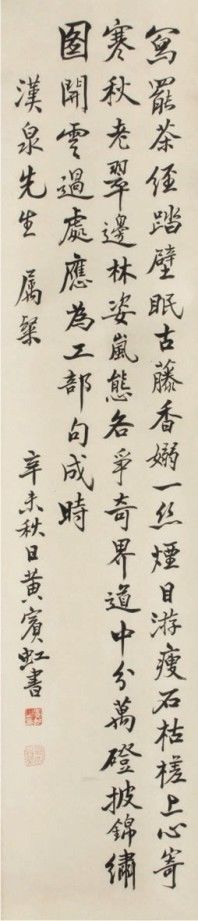 寫罷茶經踏壁眠古藤香嫋一絲煙目游瘦石枯槎上心寄
寒秋老翠邊林姿嵐態各爭奇界道中分萬磴披錦繡
圖開雲過處應為工部句成時
漢泉先生 属粲
辛未秋日黃賓虹書